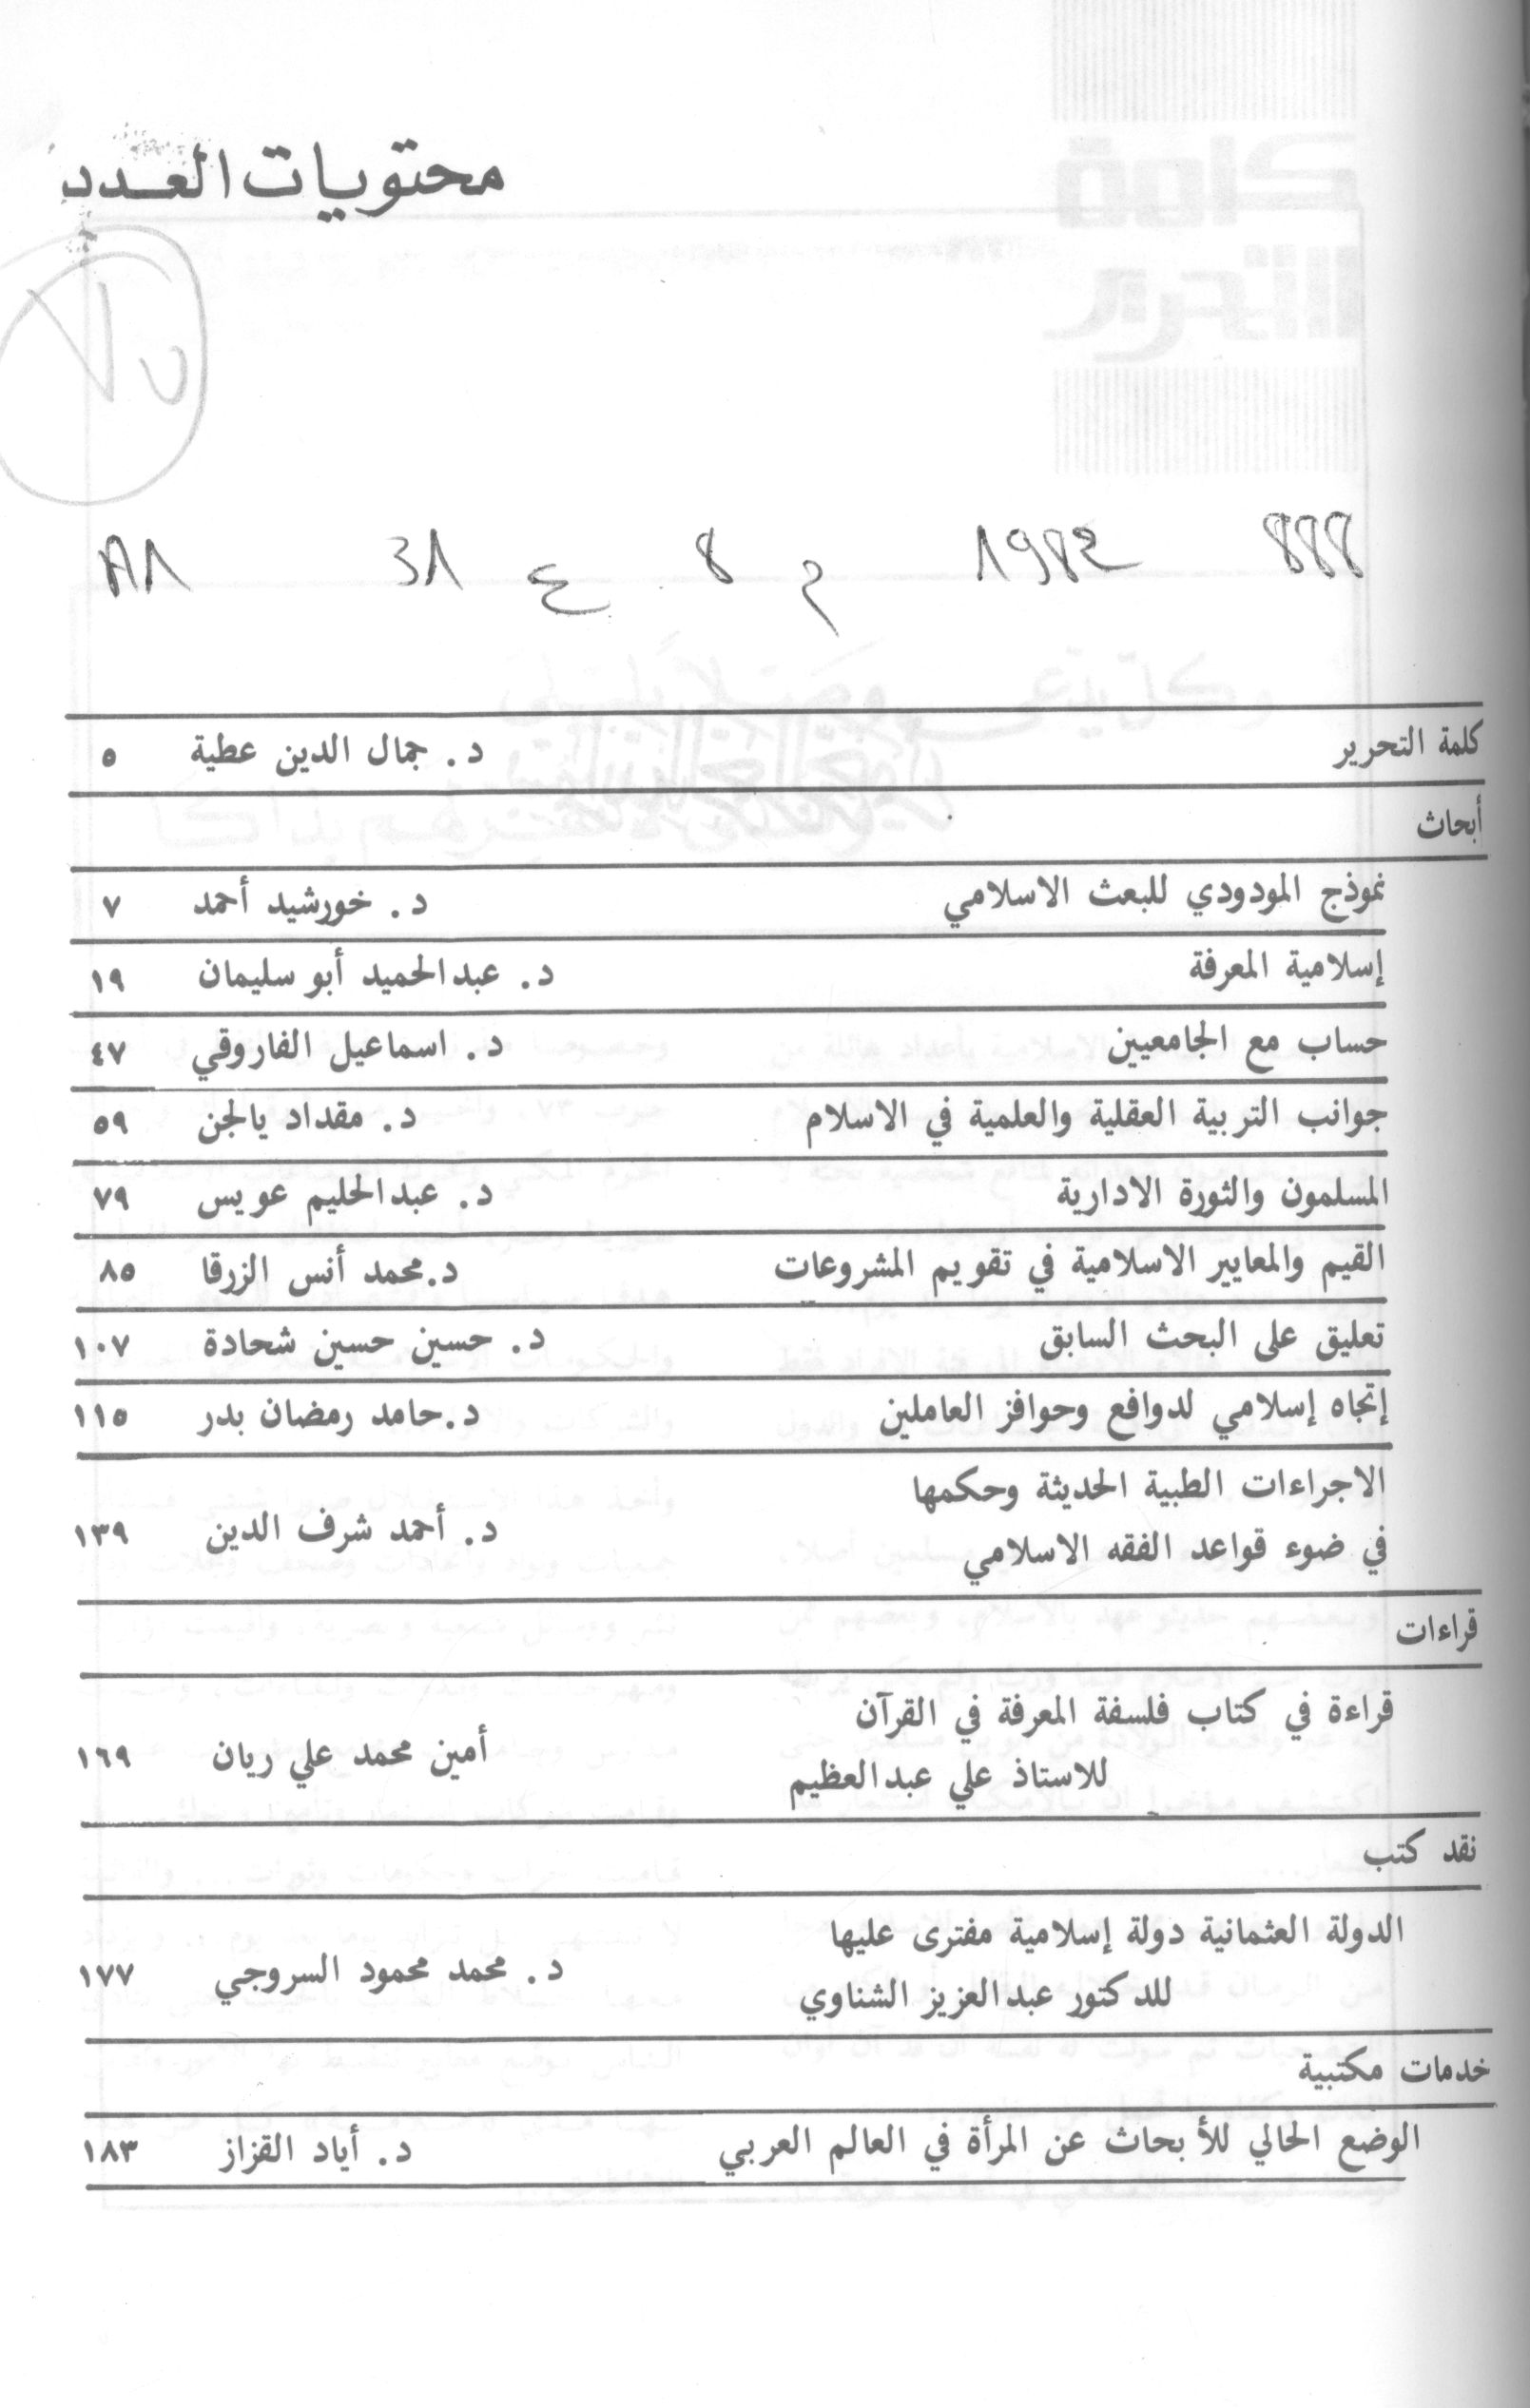 محتويات العدد
888 1982 م 8 ع 31
كلمة التحرير د. جمال الدين عطية ٥
أبحاث
نموذج المودودي للبعث الاسلامي د. خورشيد أحمد ٧
إسلامية المعرفة د. عبدالحميد أبو سليمان ١٩
حساب مع الجامعيين د. اسماعيل الفاروقي ٤٧
جوانب التربية العقلية والعلمية في الاسلام د. مقداد يالجن ٥٩
المسلمون والثورة الادارية د. عبدالحليم عويس ٧٩
القيم والمعايير الاسلامية في تقويم المشروعات د.محمد أنس الزرقا ٨٥
تعليق على البحث السابق د. حسين حسين شحادة ١٠٧
إتجاه إسلامي لدوافع وحوافز العاملين د.حامد رمضان بدر ١١٥
الاجراءات الطبية الحديثة وحكمها
في ضوء قواعد الفقه الاسلامي د. أحمد شرف الدين ١٣٩
قراءات
قراءة في كتاب فلسفة المعرفة في القرآن
للاستاذ علي عبدالعظيم أمين محمد علي ريان ١٦٩
نقد كتب
الدولة العثمانية دولة إسلامية مفترى عليها
للدكتور عبدالعزيز الشناوي د. محمد محمود السروجي ١٧٧
خدمات مكتبية
الوضع الحالي للأبحاث عن المرأة في العالم العربي د. أياد القزاز ١٨٣